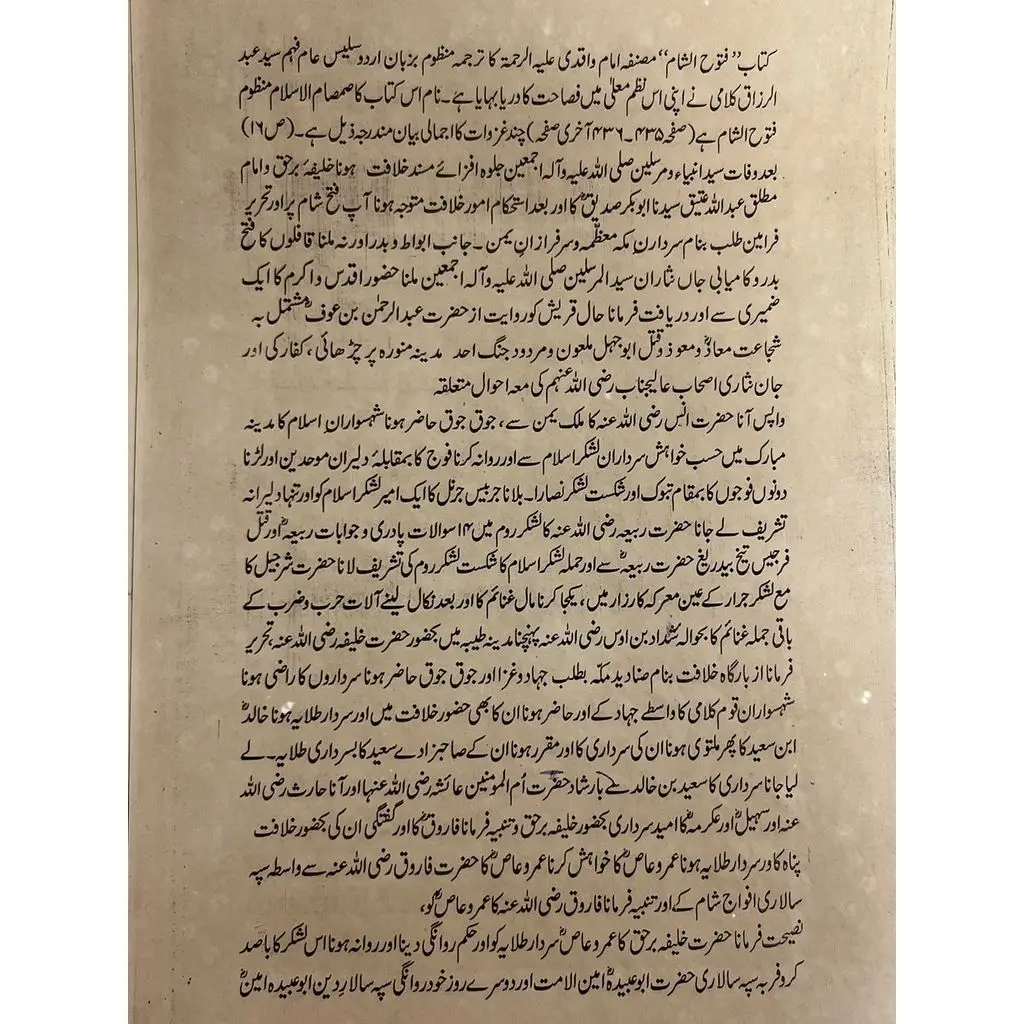 کتاب ”فتوح الشام“ مصنفہ امام واقدی علیہ الرحمۃ کا ترجمہ منظوم بزبان اردو سلیس عام فہم سید عبد
الرزاق کلامی نے اپنی اس نظم معلیٰ میں فصاحت کا دریا بہایا ہے۔ نام اس کتاب کا صمصام الاسلام منظوم
فتوح الشام ہے (صفحہ ۴۳۵۔۴۳۶ آخری صفحہ) چند غزوات کا اجمالی بیان مندرجہ ذیل ہے۔ (ص ۱۶)
بعد وفات سید انبیاء و مرسلین صلی اللہ علیہ وآلہ اجمعین جلوہ افزائے مسند خلافت ہونا خلیفۂ برحق و امام
مطلق عبد اللہ عتیق سیدنا ابوبکر صدیقؓ کا اور بعد استحکام امور خلافت متوجہ ہونا آپ فتح شام پر اور تحریر
فرامین طلب بنام سردارنِ مکہ معظّمہ و سرفرازانِ یمن ۔ جانب ابواط و بدر اور نہ ملنا قافلوں کا فتح
بدر و کامیابی جاں نثاران سید المرسلین صلی اللہ علیہ وآلہ اجمعین ملنا حضور اقدس و اکرم کا ایک
ضمیری سے اور دریافت فرمانا حال قریش کو روایت از حضرت عبد الرحمٰن بن عوفؓ مشتمل بہ
شجاعت معاذؓ و معوذ و قتل ابو جہل ملعون و مردود جنگ احد مدینہ منورہ پر چڑھائی، کفار کی اور
جان نثاری اصحاب عالیجناب رضی اللہ عنہم کی معہ احوال متعلقہ
واپس آنا حضرت انس رضی اللہ عنہ کا ملک یمن سے، جوق جوق حاضر ہونا شہسواران اسلام کا مدینہ
مبارک میں حسب خواہش سرداران لشکر اسلام سے اور روانہ کرنا فوج کا بمقابلۂ دلیران موحدین اور لڑنا
دونوں فوجوں کا بمقام تبوک اور شکست لشکر نصارا۔ بلانا جرجیس جرنل کا ایک امیر لشکر اسلام کو اور تنہا دلیرانہ
تشریف لے جانا حضرت ربیعہ رضی اللہ عنہ کا لشکر روم میں ۱۴ سوالات پادری و جوابات ربیعہؓ اور قتل
فرجیس تیغ بیدریغ حضرت ربیعہؓ سے اور حملہ لشکر اسلام کا شکست لشکر روم کی تشریف لانا حضرت شرجیل کا
مع لشکر جرار کے عین معرکہ کارزار میں، یکجا کرنا مال غنائم کا اور بعد نکال لینے آلات حرب و ضرب کے
باقی جملہ غنائم کا بحوالہ شداد بن اوس رضی اللہ عنہ پہنچنا مدینہ طیبہ میں بحضور حضرت خلیفہ رضی اللہ عنہ، تحریر
فرمانا از بارگاہ خلافت بنام صنادید مکہ بطلب جہاد و غزا اور جوق جوق حاضر ہونا سرداروں کا راضی ہونا
شہسواران قوم کلامی کا واسطے جہاد کے اور حاضر ہونا ان کا بھی حضور خلافت میں اور سردار طلایہ ہونا خالدؓ
ابن سعید کا پھر ملتوی ہونا ان کی سرداری کا اور مقرر ہونا ان کے صاحبزادے سعید کا بسرداری طلایہ۔ لے
لیا جانا سرداری کا سعید بن خالد سے بارشاد حضرت اُم المومنین عائشہ رضی اللہ عنہا اور آنا حارث رضی اللہ
عنہ اور سہیلؓ اور عکرمہؓ کا امید سرداری بحضور خلیفہ برحق و تنبیہ فرمانا فاروقؓ کا اور گفتگی ان کی بحضور خلافت
پناہ کا ور سردار طلایہ ہونا عمرو عاصؓ کا خواہش کرنا عمرو عاصؓ کا حضرت فاروق رضی اللہ عنہ سے واسطہ سپہ
سالاری افواج شام کے اور تنبیہ فرمانا فاروق رضی اللہ عنہ کا عمرو عاصؓ کو،
نصیحت فرمانا حضرت خلیفہ برحق کا عمرو عاصؓ سردار طلایہ کو اور حکم روانگی دینا اور روانہ ہونا اس لشکر کا باصد
کروفر بہ سپہ سالاری حضرت ابو عبیدہؓ امین الامت اور دوسرے روز خود روانگی سپہ سالارِ دین ابو عبیدہ امینؓ